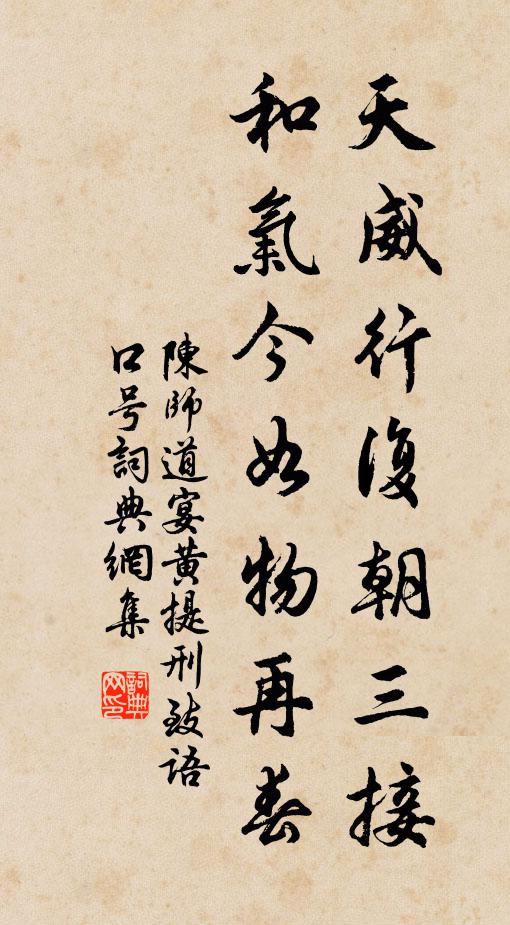 天威行復朝三接
和氣今如物再春
陳師道宴黃提刑致語
口号詞典網集
詞典網印